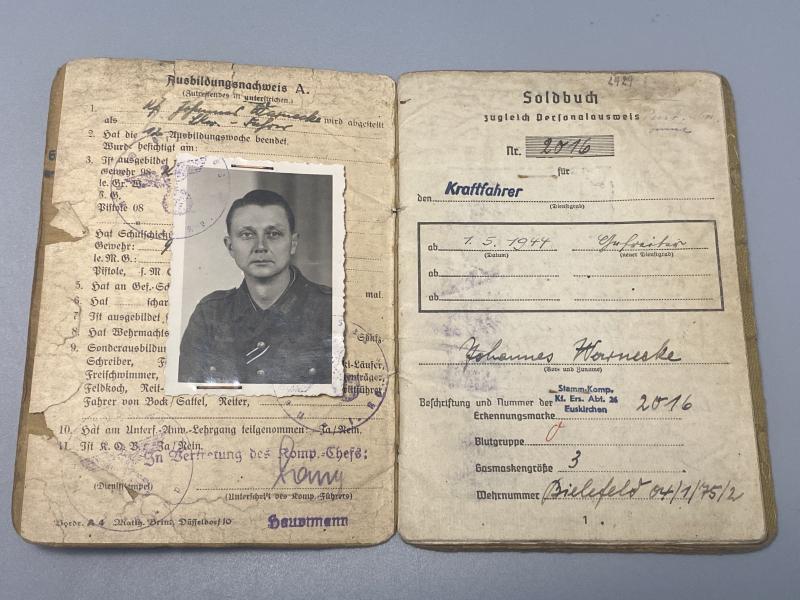 Ausbildungsnachweis A.
(Zutreffendes ist unterstrichen.)
1. Johannes Warneske wird abgestellt
als Kw.-Fahrer
2. Hat die Ausbildungswoche beendet.
Wurde besichtigt am:
3. Ist ausgebildet
Gewehr 98
le. Gr. W.
s. G.
Pistole 08
Hat Schulschieß
Gewehr:
le. M. G.:
Pistole, s. M. G
5. Hat an Gef.-Sch mal.
6. Hat schar
7. Ist ausgebildet
8. Hat Wehrmachts
9. Sonderausbildung
Schreiber, ki-Läufer,
Freischwimmer,
Feldkoch, Reit-
Fahrer von Bock/Sattel, Reiter,
10. Hat am Unterf.-Anw.-Lehrgang teilgenommen: Ja/Nein.
11. Ist K. O. B. Ja/Nein.
In Vertretung des Komp.-Chefs:
(Dienststempel) (Unterschrift des Komp.-Führers)
Hauptmann
Vordr. A 4 Matth. Brim, Düsseldorf 10
2929
Soldbuch
zugleich Personalausweis
Nr. 2016
für
den Kraftfahrer
(Dienstgrad)
ab 1.5.1944 Gefreiter
(Datum) (neuer Dienstgrad)
ab
ab
Johannes Warneske
(Vor- und Zuname)
Beschriftung und Nummer der
Erkennungsmarke Stamm-Komp.
Kf. Ers. Abt. 26
Euskirchen 2016
Blutgruppe 0
Gasmaskengröße 3
Wehrnummer Bielefeld 04/1/75/2
1